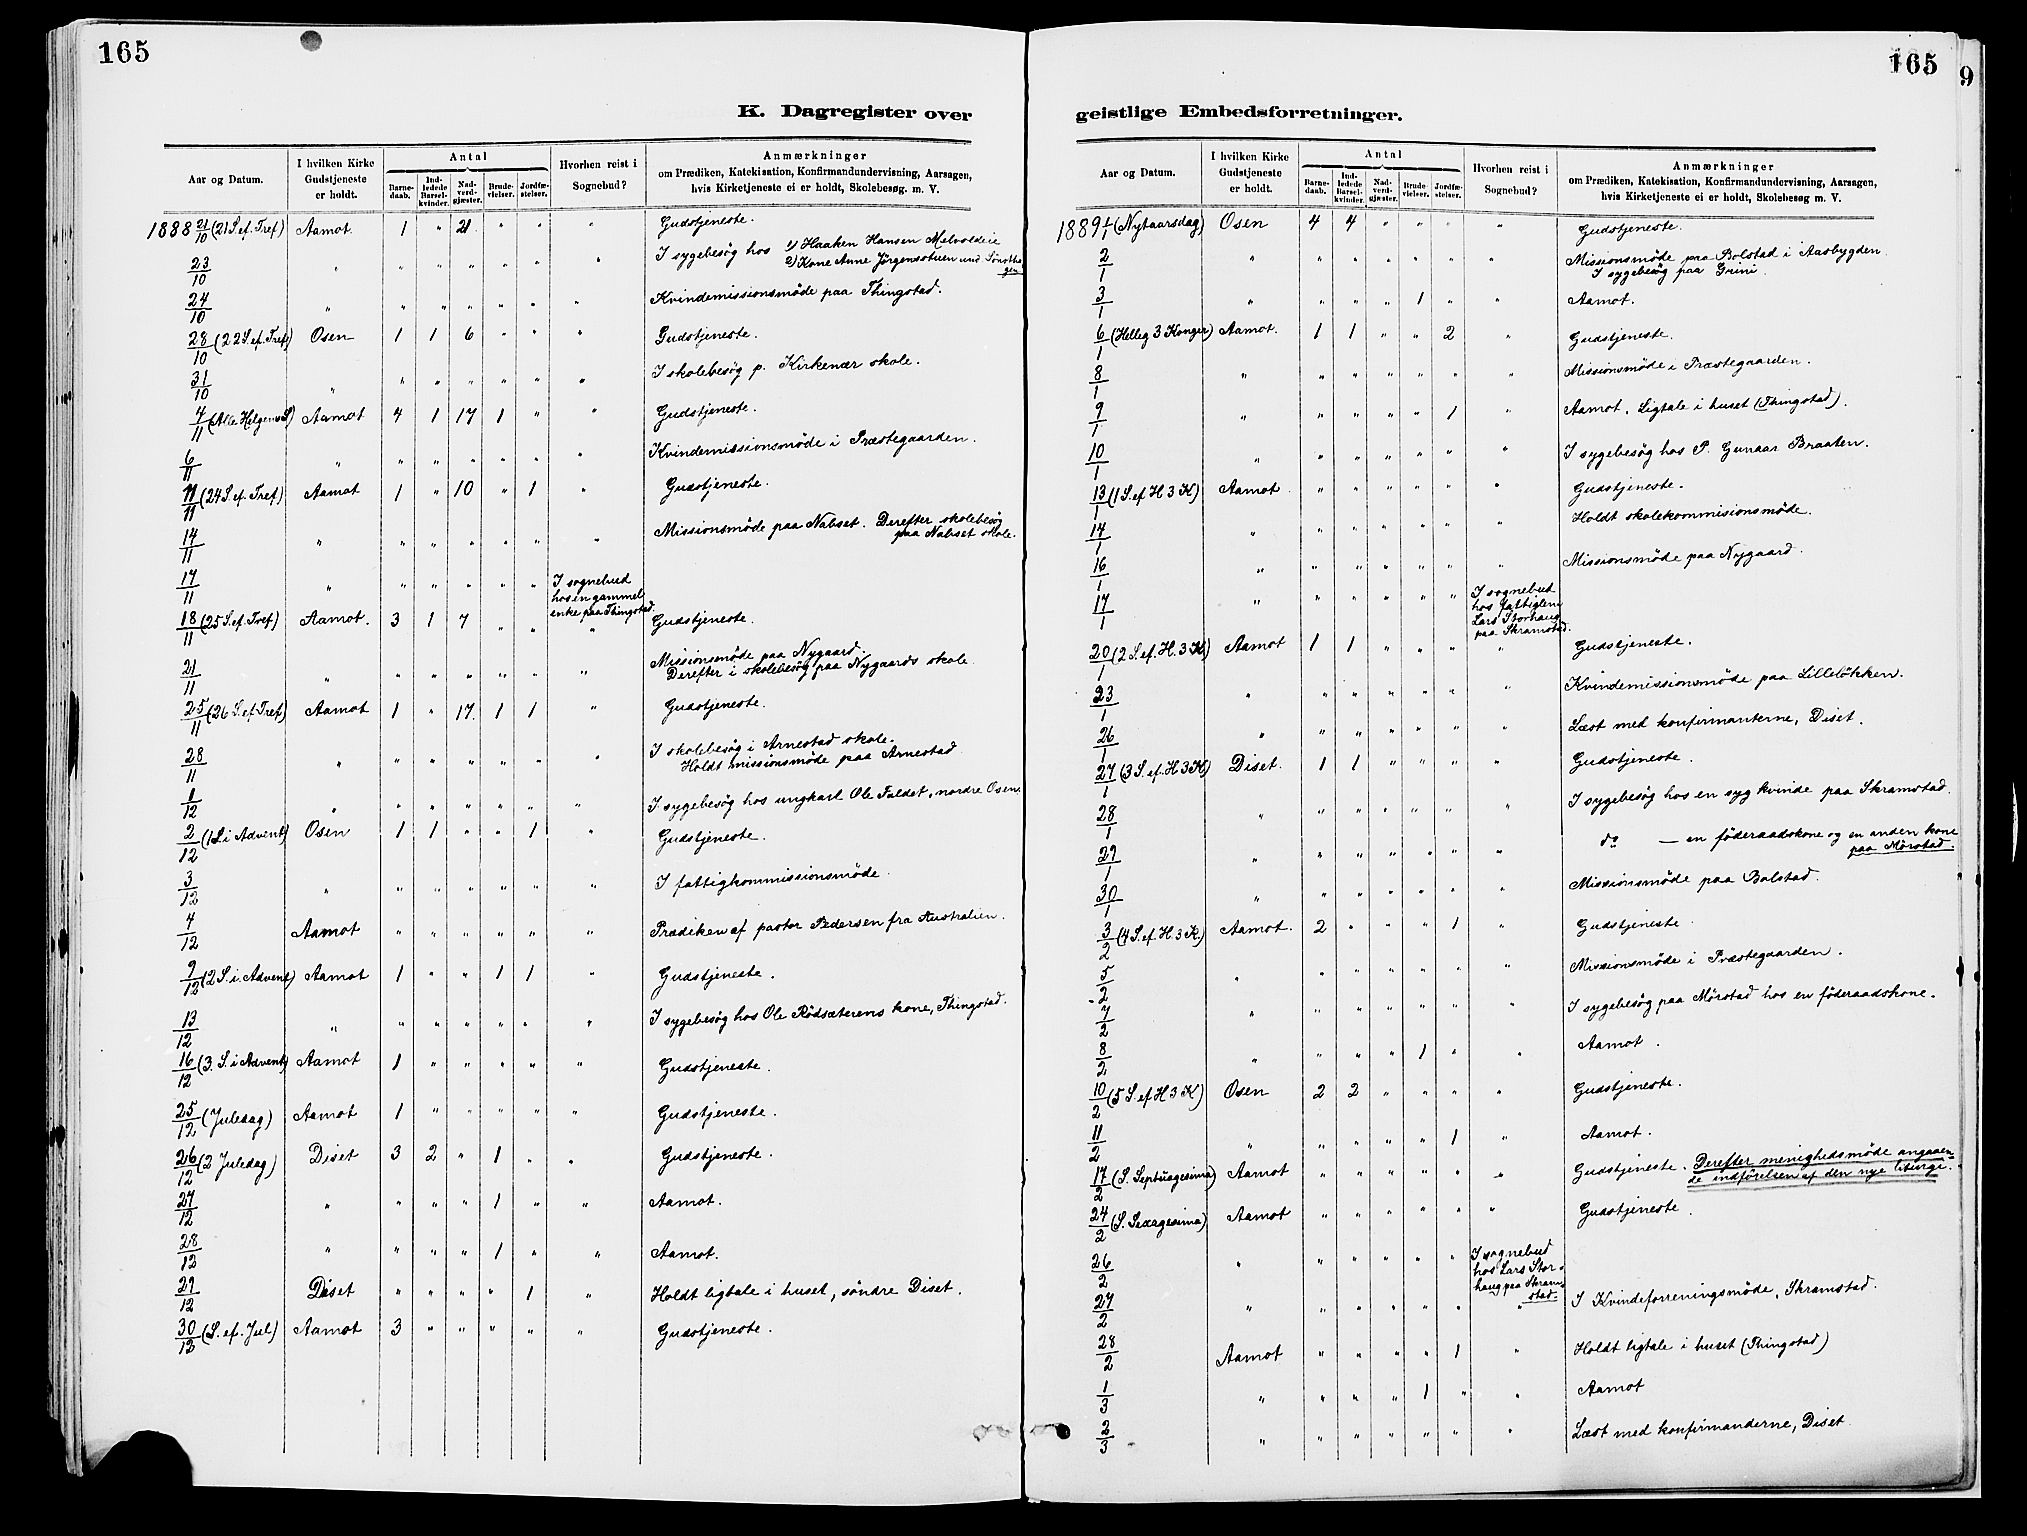 165
K. Dagregister over
Aar og Datum. I hvilken Kirke Gudstjeneste er holdt. Antal Barnedaab. Indledede Barselkvinder. Nadverdgjæster. Brudevielser. Jordfæstelser. Hvorhen reist i Sognebud? Anmærkninger om Prædiken, Katekisation, Konfirmandundervisning, Aarsagen, hvis Kirketjeneste ei er holdt, Skolebesøg. m. V.
1888 21/10 (21 S. ef. Tref) Aamot. 1 " 21. " " " Gudstjeneste.
23/10 " " " " " " " I sygebesög hos 1) Haaken Hansen Melvoldeie
2) Kone Anne Jörgensstuen und
24/10 " " " " " " " Kvindemissionsmöde paa Thingstad.
28/10 (22 S. ef. Tref) Osen 1 1 6 " " " Gudstjeneste.
31/10 " " " " " " " I skolebesög p. Kirkenær skole.
4/11 (Alle Helgens S) Aamot 4 1 17 1 " " Gudstjeneste.
6/11 " " " " " " " Kvindemissionsmöde i Præstegaarden.
11/11 (24 S. ef. Tref) Aamot 1 " 10 " 1 " Gudstjeneste.
14/11 " " " " " " " Missionsmöde paa Nabset. Derefter skolebesög
paa Nabset skole.
17/11 " " " " " " I sognebud
hos en gammel
enke paa Thingstad.
18/11 (25 S. ef. Tref) Aamot. 3 1 7 " " " Gudstjeneste.
21/11 " " " " " " " Missionsmöde paa Nygaard.
Derefter i skolebesög paa Nygaards skole.
25/11 (26 S. ef. Tref) Aamot 1 " 17. 1 1 " Gudstjeneste.
28/11 " " " " " " " I skolebesög i Arnestad skole.
Holdt missionsmöde paa Arnestad
1/12 " " " " " " " I sygebesög hos ungkarl Ole Faldet, nordre Osen.
2/12 (1 S. i Advent) Osen 1 1 " " 1 " Gudstjeneste.
3/12 " " " " " " " I fattigkommissionsmöde.
4/12 Aamot " " " " " " Prædiken af pastor Pedersen fra Australien.
9/12 (2 S. i. Advent) Aamot 1 " " 1 1 " Gudstjeneste.
13/12 " " " " " " " I sygebesög hos Ole Rödsæterens kone, Thingstad.
16/12 (3. S. i Advent) Aamot 1 " " " " " Gudstjeneste.
25/12 (Juledag) Aamot 1 " " " " " Gudstjeneste.
26/12 (2 Juledag) Diset 3 2 " 1 " " Gudstjeneste.
27/12 " " " " 1 " " Aamot.
28/12 " " " " 1 " " Aamot.
29/12 Diset " " " " 1 " Holdt ligtale i huset, söndre Diset.
30/12 (S. ef. Jul) Aamot 3 " " " " " Gudstjeneste.
165
9
geistlige Embedsforretninger.
Aar og Datum. I hvilken Kirke Gudstjeneste er holdt. Antal Barnedaab. Indledede Barselkvinder. Nadverdgjæster. Brudevielser. Jordfæstelser. Hvorhen reist i Sognebud? Anmærkninger om Prædiken, Katekisation, Konfirmandundervisning, Aarsagen, hvis Kirketjeneste ei er holdt, Skolebesøg m. V.
1889 1/1 (Nytaarsdag) Osen 4 4 " " " " Gudstjeneste.
2/1 " " " " " " " Missionsmöde paa Bolstad i Aasbygden
I sygebesög paa Grini.
3/1 " " " " 1 " " Aamot.
6/1 (Helleg 3 Konger) Aamot. 1 1 " " 2 " Gudstjeneste.
8/1 " " " " " " " Missionsmöde i Præstegaarden.
9/1 " " " " " 1 " Aamot. Ligtale i huset (Thingstad).
10/1 " " " " " " " I sygebesög hos P. Gunaar Braaten.
13/1 (1 S. ef H 3 K) Aamot " " " " " " Gudstjeneste.
14/1 " " " " " " " Holdt skolekommisionsmöde.
16/1 " " " " " " " Missionsmöde paa Nygaard.
17/1 " " " " " " I sognebud
hos fattiglem
Lars Storhaug
paa Skramstad.
20/1 (2 S. ef. H. 3 K) Aamot 1 1 " " " " Gudstjeneste.
23/1 " " " " " " " Kvindemissionsmöde paa Lillelökken.
26/1 " " " " " " " Læst med konfirmanterne, Diset.
27/1 (3 S. ef. H 3 K) Diset. 1 1 " " " " Gudstjeneste.
28/1 " " " " " " " I sygebesög hos en syg kvinde paa Skramstad.
29/1 " " " " " " " do — en föderaadskone og en anden kone
paa Mörstad.
30/1 " " " " " " " Missionsmöde paa Bolstad.
3/2 (4 S. ef. H. 3 K.) Aamot. 2 " " " 1 " Gudstjeneste
5/2 " " " " " " " Missionsmöde i Præstegaarden.
7/2 " " " " " " " I sygebesög paa Mörstad hos en föderaadskone.
8/2 " " " " 1 " " Aamot.
10/2 (5 S. ef H 3 K) Osen 2 2 " " " " Gudstjeneste.
11/2 " " " " " 1 " Aamot.
17/2 (S. Septuagesima) Aamot " " " " " " Gudstjeneste. Derefter menighedsmöde angaaen-
de indförelsen af den nye liturgi.
24/2 (S. Sexagesima) Aamot " " " " " " Gudstjeneste.
26/2 " " " " " " I sognebud
hos Lars Stor-
haug paa Skram-
stad.
27/2 " " " " " " " I Kvindeforreningsmöde, Skramstad.
28/2 Aamot " " " " 1 " Holdt ligtale i huset (Thingstad)
1/3 " " " " 1 " " Aamot
2/3 " " " " " " " Læst med konfirmanderne, Diset